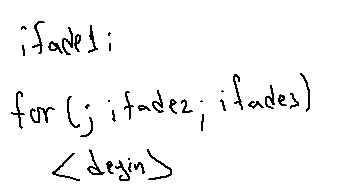 ifade1;
for (; ifade2; ifade3)
<deyim>